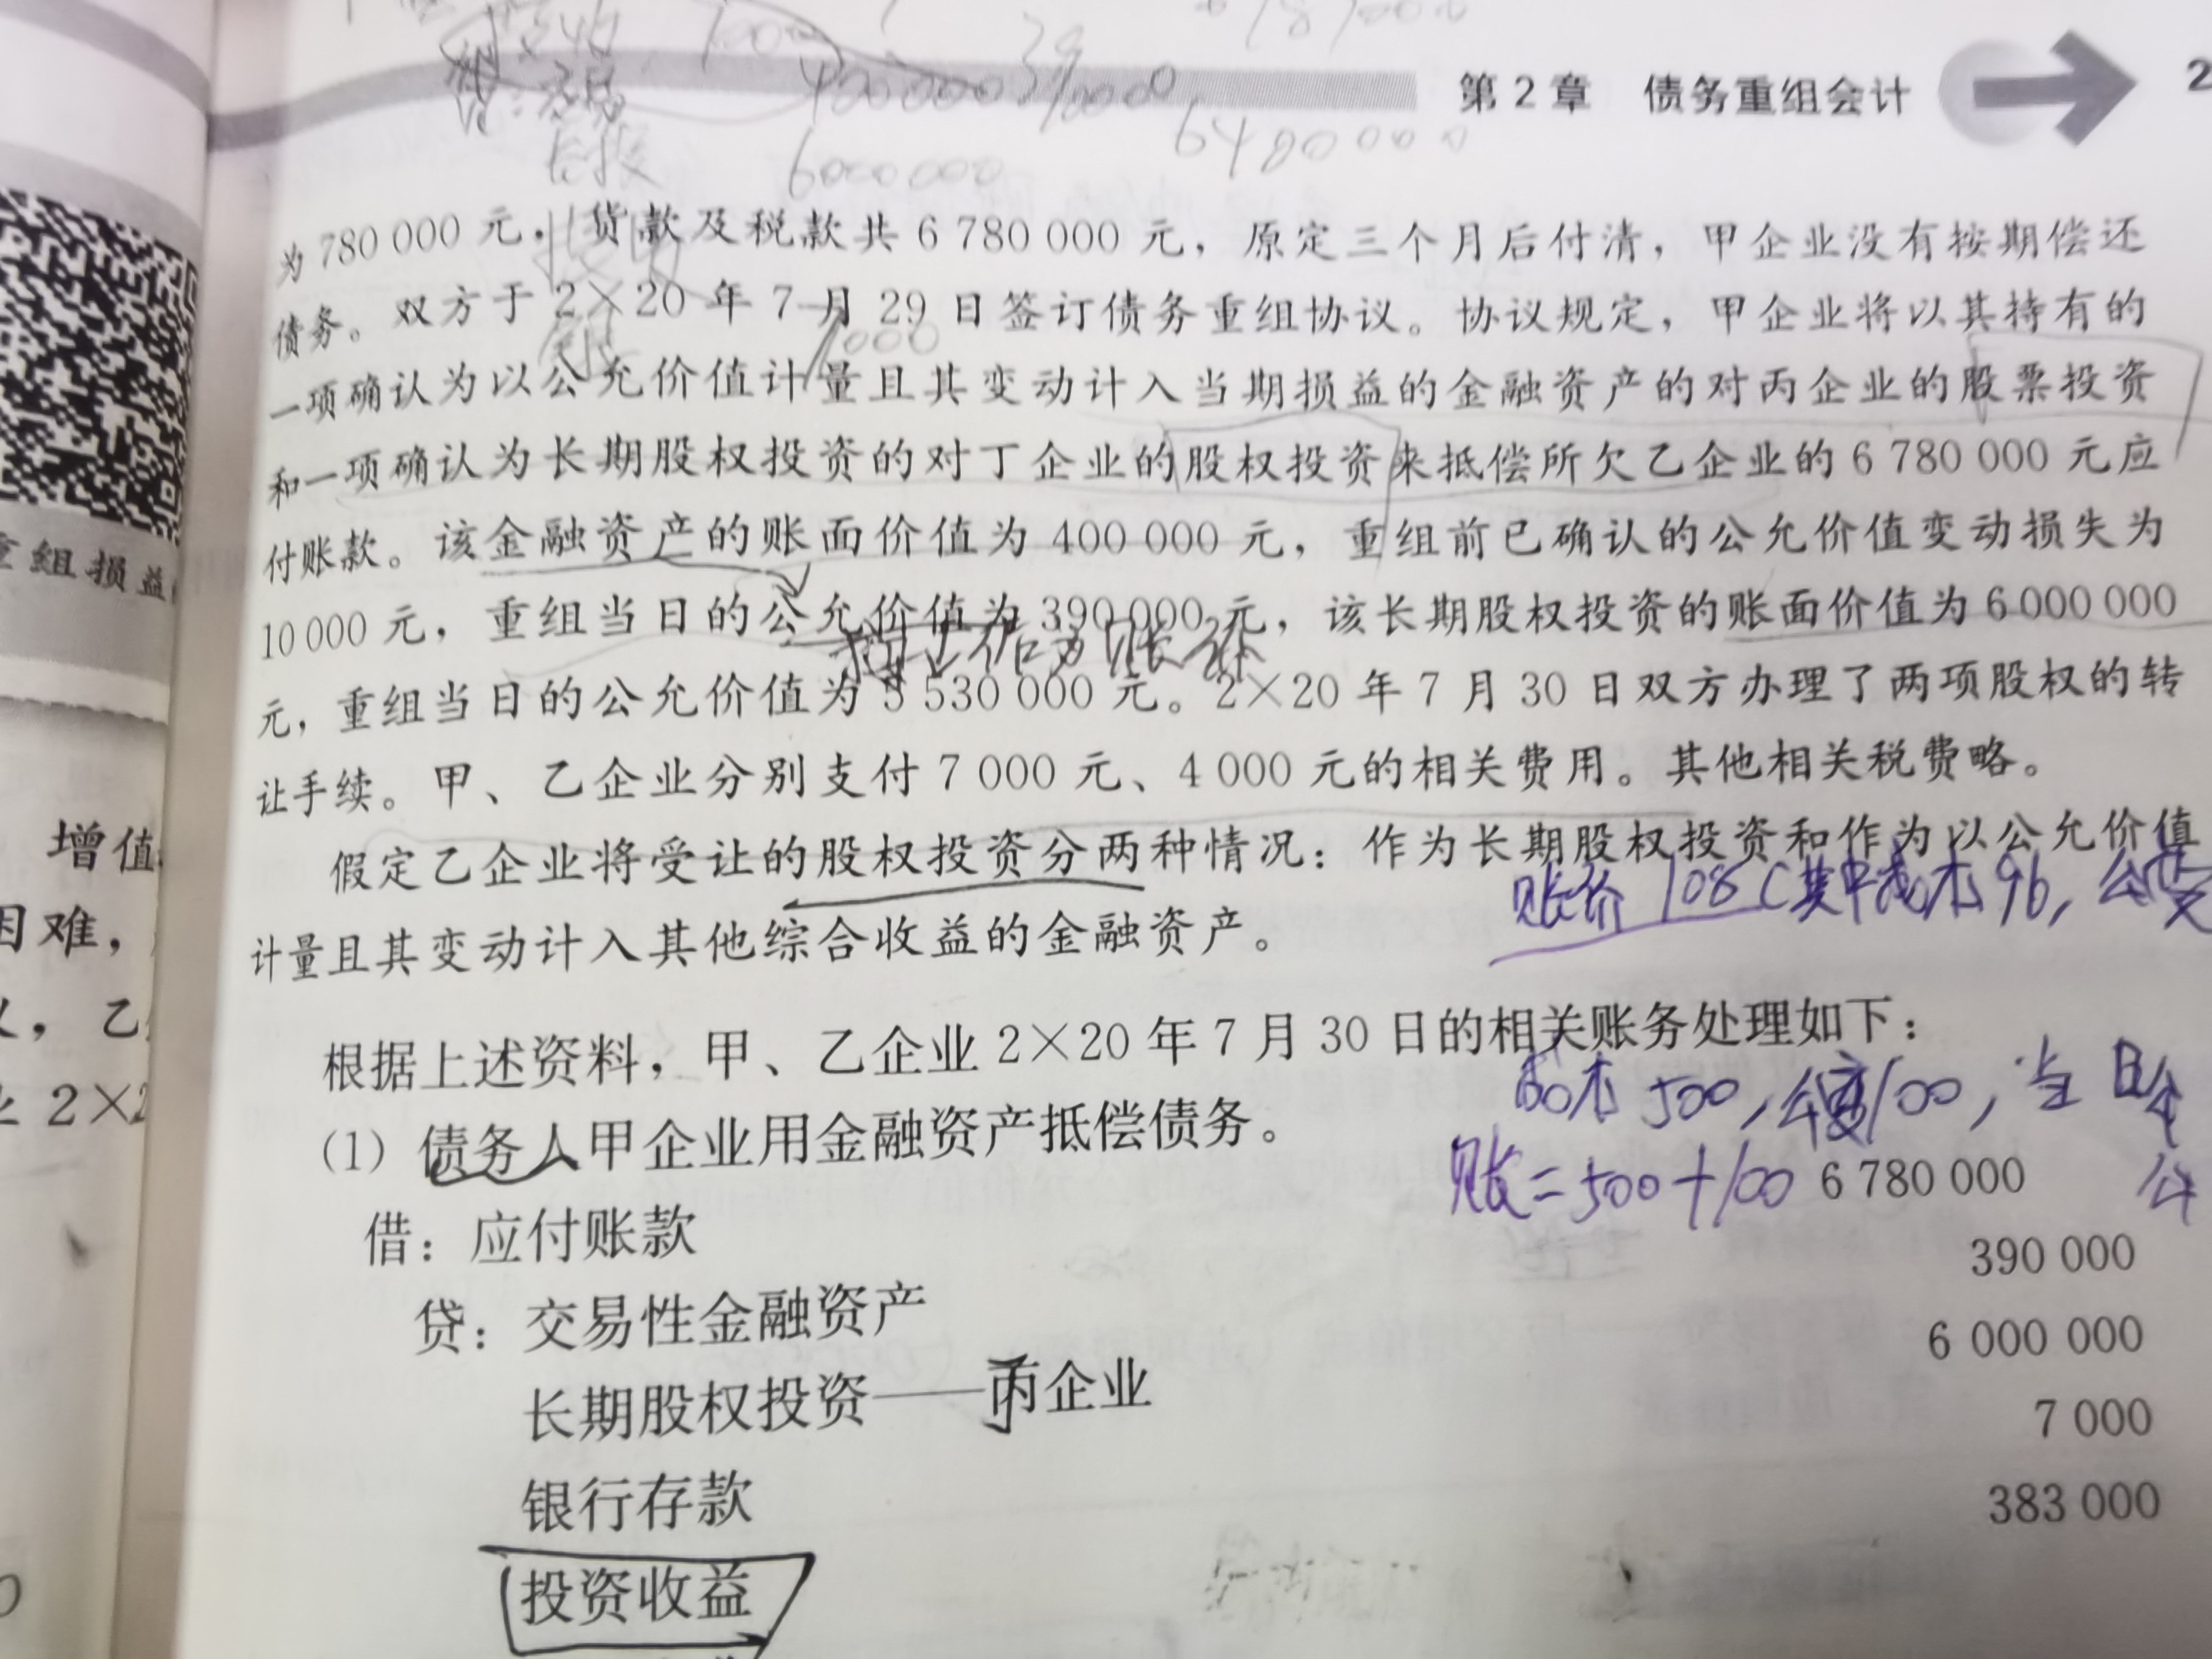 第2章 债务重组会计
400000 390000
6480000
长投 6000000
为 780 000 元，货款及税款共 6 780 000 元，原定三个月后付清，甲企业没有按期偿还
债务。双方于 2×20 年 7 月 29 日签订债务重组协议。协议规定，甲企业将以其持有的
一项确认为以公允价值计量且其变动计入当期损益的金融资产的对丙企业的股票投资
和一项确认为长期股权投资的对丁企业的股权投资来抵偿所欠乙企业的 6 780 000 元应
重组损益
付账款。该金融资产的账面价值为 400 000 元，重组前已确认的公允价值变动损失为
10 000 元，重组当日的公允价值为 390 000 元，该长期股权投资的账面价值为 6 000 000
元，重组当日的公允价值为 5 530 000 元。2×20 年 7 月 30 日双方办理了两项股权的转
让手续。甲、乙企业分别支付 7 000 元、4 000 元的相关费用。其他相关税费略。
增值
假定乙企业将受让的股权投资分两种情况：作为长期股权投资和作为以公允价值
账价 108（其中成本 96，公变
困难，
计量且其变动计入其他综合收益的金融资产。
，乙
根据上述资料，甲、乙企业 2×20 年 7 月 30 日的相关账务处理如下：
2×2
成本 500，公变100，当日公
(1) 债务人甲企业用金融资产抵偿债务。
账=500+100
借：应付账款 6 780 000
贷：交易性金融资产 390 000
长期股权投资——丁企业 6 000 000
银行存款 7 000
投资收益 383 000